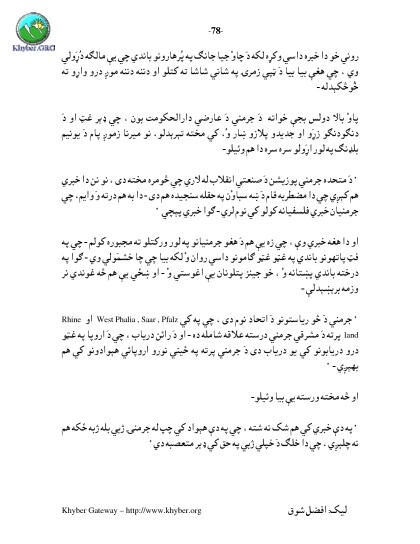 -78-
Khyber.ORG
روني خو دا خبره داسي وکړه لکه دَ چاؤ جيا جانګ په پُرهارونو باندي چي يې مالګه دُړَولي
وي ، چي هغې بيا بيا دَ ټپي زمرۍ په شاني شاشا ته کتلو او دننه دننه موږ درو واړو ته
خوځکېدله-
پاؤ بالا دولس بجې خواته دَ جرمني دَ عارضي دارالحکومت بون ، چي ډېر غټ او دَ
دنګودنګو زړو او جديدو پلازو ښار وُ، کي مخته تېرېدلو، نو ميرنا زموږ پام دَ يونيم
بلډنګ په لور اړَولو سره سره دا هم وئيلو-
" دَ متحده جرمني پوزيشن دَ صنعتي انقلاب له لاري چي څومره مخته دی ، نو نن دا خبري
هم کېږي چي دا مضطربه قام دَ ښه سباوُن په حقله سنجيده هم دی- دا به هم درته وَ وايم، چي
جرمنيان خبري فلسفيانه کولو کي نوم لري- ګوا خبري پېچي "
او دا هغه خبري وې ، چي زه يې هم دَ هغو جرمنيانو په لور ورکتلو ته مجبوره کولم- چي په
فټ پاتهونو باندي په غټو غټو ګامونو داسي روان وُ لکه بيا چي چا خشمَولي وي- ګوا په
درخته باندي پښتانه وُ ، خو جينز پتلونان يې اغوستي وُ- او ښځي يې هم څه غوندي نر
وزمه برېښېدلې-
" جرمني دَ څو رياستونو دَ اتحاد نوم دی ، چي په کي West Phalia , Saar , Pfalz او Rhine
land پرته دَ مشرقي جرمني درسته علاقه شامله ده- او دَ رائن درياب ، چي دَ اروپا په غټو
درو دريابونو کي يو درياب دی دَ جرمني پرته په ځيني نورو اروپائي هېوادونو کي هم
بهېږي- "
او څه مخته ورسته يې بيا وئيلو-
" په دې خبري کي هم شک نه شته ، چي په دې هېواد کي چپ له جرمنۍ ژبي بله ژبه ځکه هم
نه چلېږي ، چي دا خلګ دَ خپلي ژبي په حق کي ډېر متعصبه دي "
Khyber Gateway – http://www.khyber.org
ليک: افضل شوق